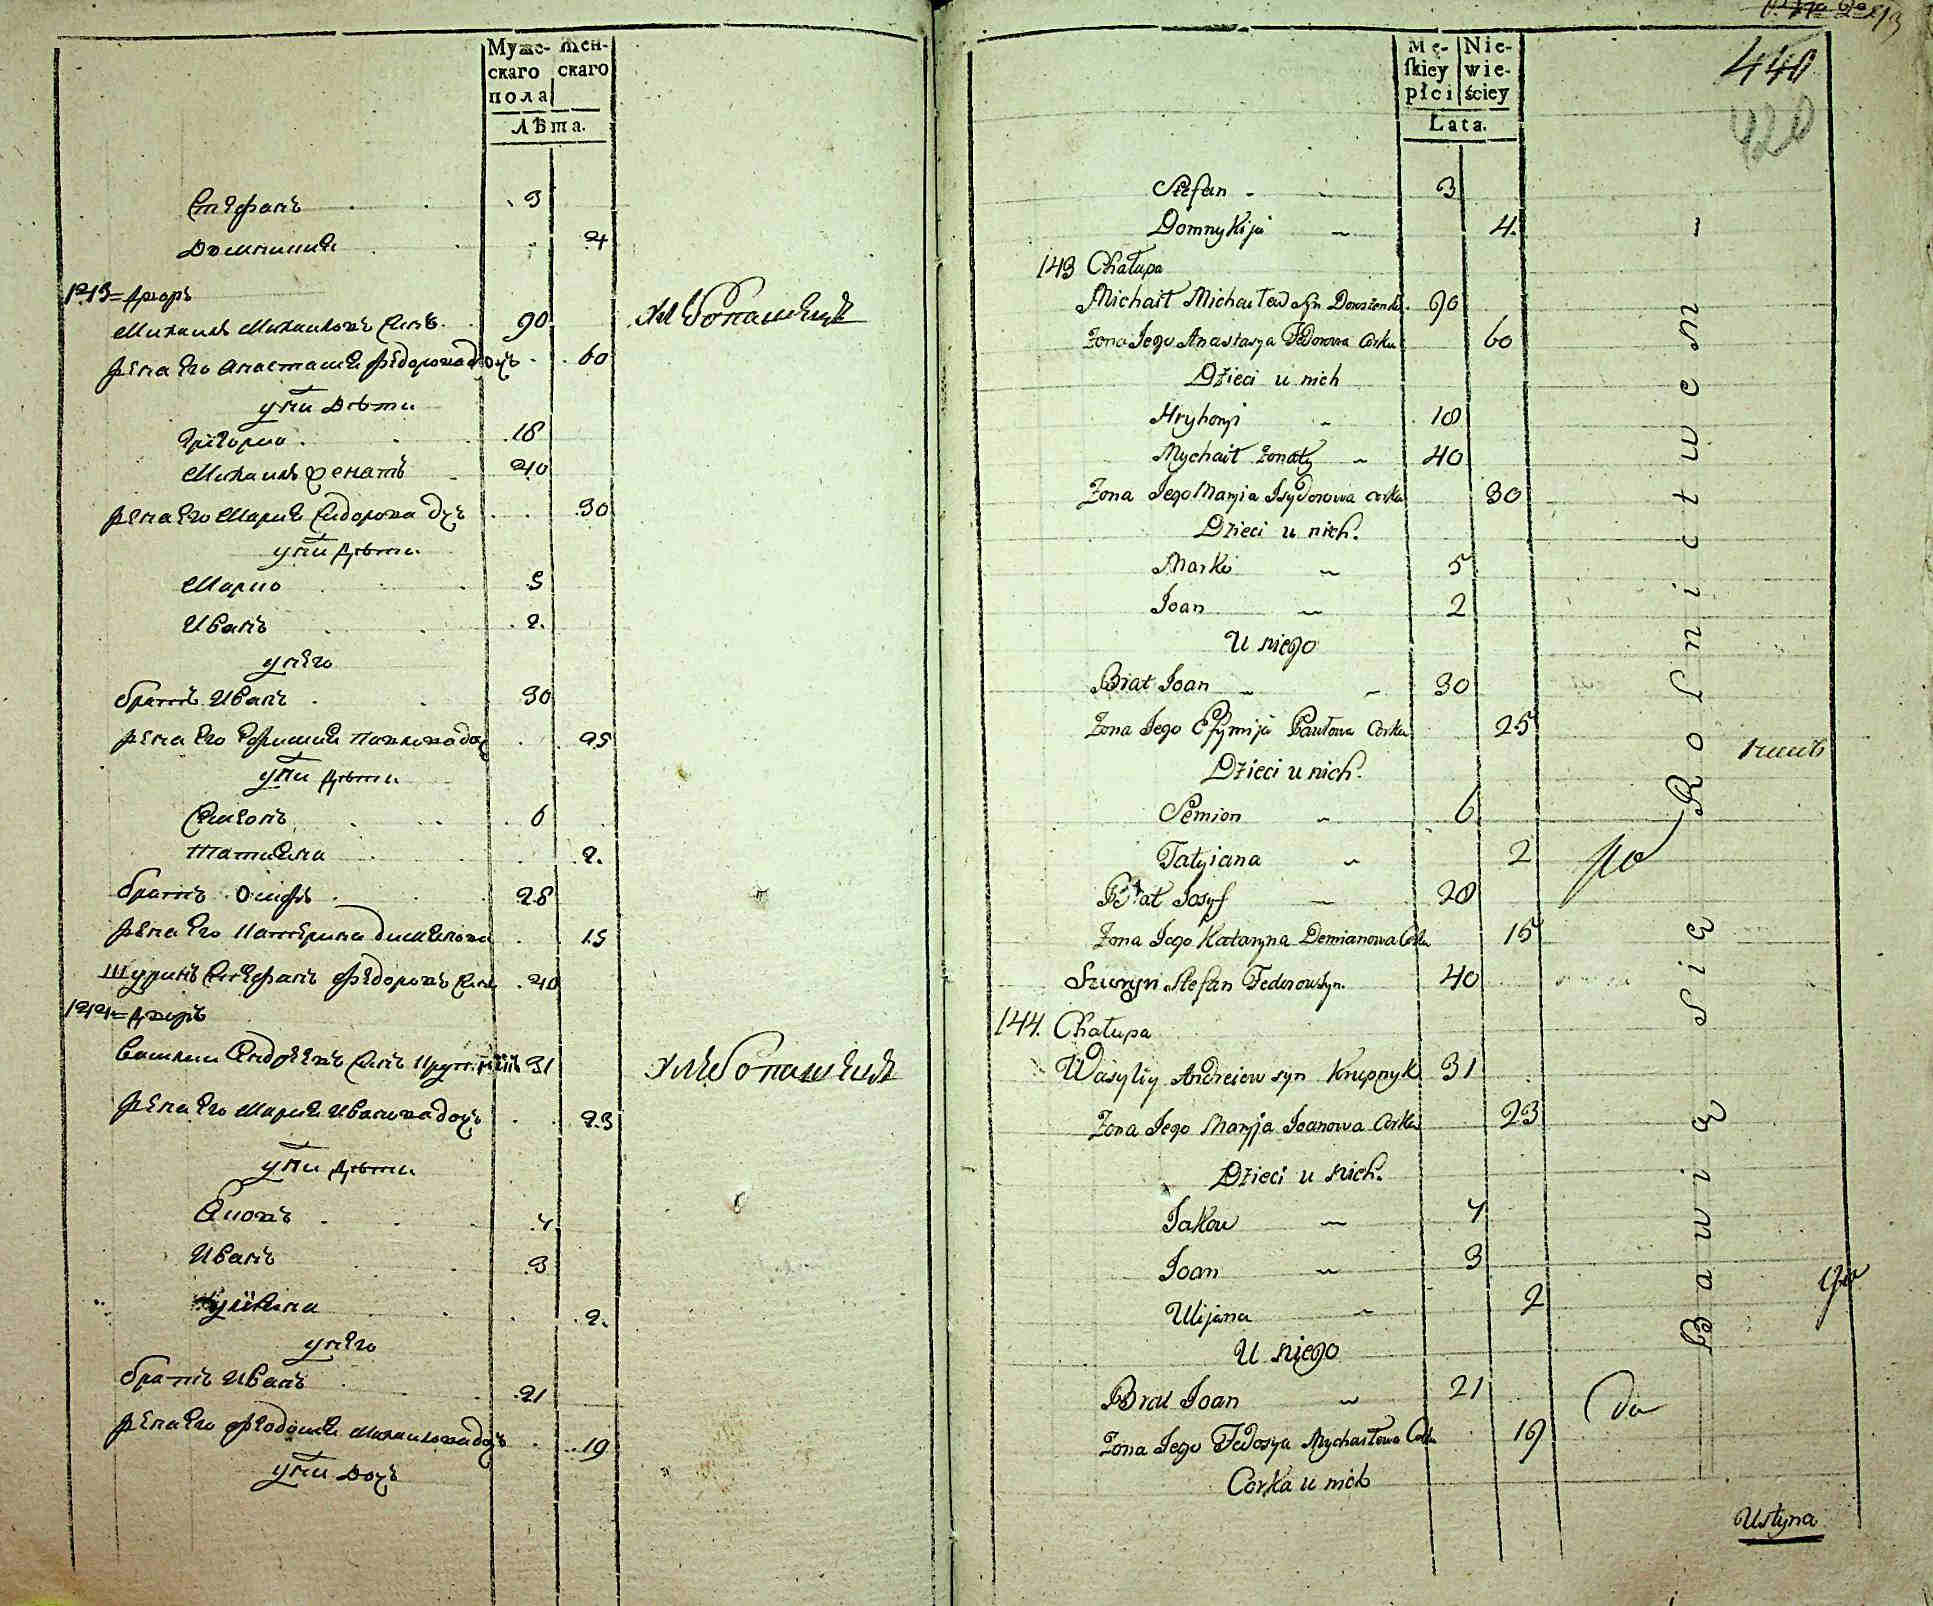 Муже- Жен-
скаго скаго
пола
Лѣта.
Стефанъ 3
Домникия 4
143 = Дворъ
Михаилъ Михаиловъ сынъ 90 хлебопашецъ
жена его Анастасия Федорова дочь 60
у них дѣти
Григорио 18
Михаилъ женатъ 40
жена его Мария Сидорова дочь 30
у них дѣти
Марко 5
Иванъ 2
у него
братъ Иванъ 30
жена его Ефимия Павлова дочь 25
у них дѣти
Симеонъ 6
Татияна 2
братъ Осифъ 28
жена его Катерина Димянова 15
Шуринъ Стефанъ Федоровъ сынъ 40
144 = Дворъ
Василии Андреевъ сынъ 31 хлебопашецъ
жена его Мария Иванова дочь 23
у них дѣти
Яковъ 4
Иванъ 3
Улияна 2
у него
братъ Иванъ 21
жена его Феодосия Михаилова дочь 19
у них дочь
Mę- Nie-
skiey wie-
płci ściey
Lata.
440
420
Stefan 3
Domnykija 4
143 Chałupa
Michaił Michaiłow syn 90
Zona Jego Anastazya Fedorowa Corka 60
Dzieci u nich
Hryhoryi 18
Mychaił Zonaty 40
Zona Jego Maryia Isydorowa corka 30
Dzieci u nich.
Marko 5
Joan 2
U niego
Brat Joan 30
Zona Jego Efymija Pawłowa Corka 25
Dzieci u nich.
Semion 6
Tatyiana 2
Brat Josyf 28
Zona Jego Kataryna Demianowa Corka 15
Szuryn Stefan Fedorow syn. 40
144. Chałupa
Wasyliy Andreiew syn Krupnyk 31
Zona Jego Maryja Joanowa Corka 23
Dzieci u nich.
Jakow 4
Joan 3
Ulijana 2
U niego
Brat Joan 21
Zona Jego Fedosya Mychaiłowa Corka 19
Corka u nich
Bawią się Rolnictwem
Ustyna